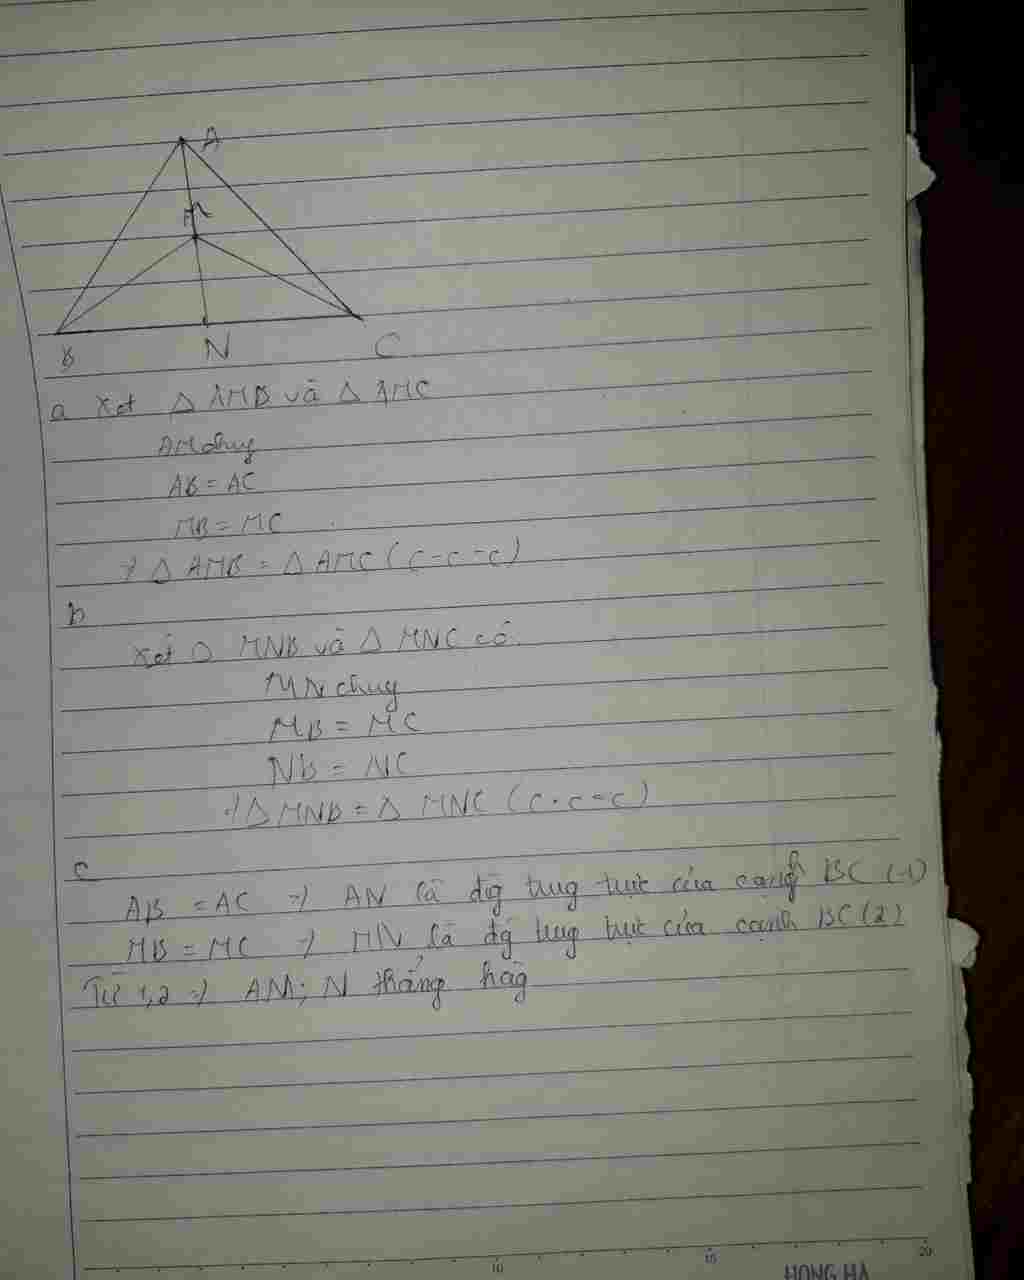 A
M
B
N
C
a Xét △ AMB và △ AMC
AM chug
AB = AC
MB = MC
=) △ AMB = △ AMC (c-c-c)
b
Xét △ MNB và △ MNC có
MN chug
MB = MC
NB = NC
=) △ MNB = △ MNC (c.c-c)
c
AB = AC =) AN là đg̀ tug trực của cạnh BC (1)
MB = MC =) MN là đg̀ tug trực của cạnh BC (2)
Từ 1,2 =) AM; N thẳng hàg
10
15
20
HONG HA